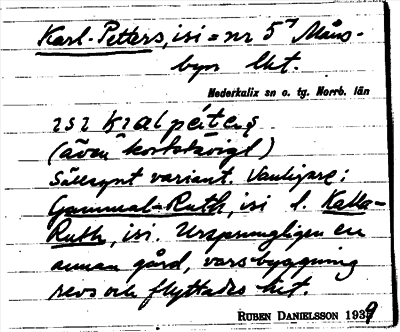 Karl-Petters, isi = nr 5⁷ Måns-
byn lht.
Nederkalix sn o. tg. Norrb. län
(även kortstavigt)
Sällsynt variant. Vanligare:
Gammal-Ruth, isi l. Kalla-
Ruth, isi. Ursprungligen en
annan gård, vars byggning
revs och flyttades hit.
RUBEN DANIELSSON 1939